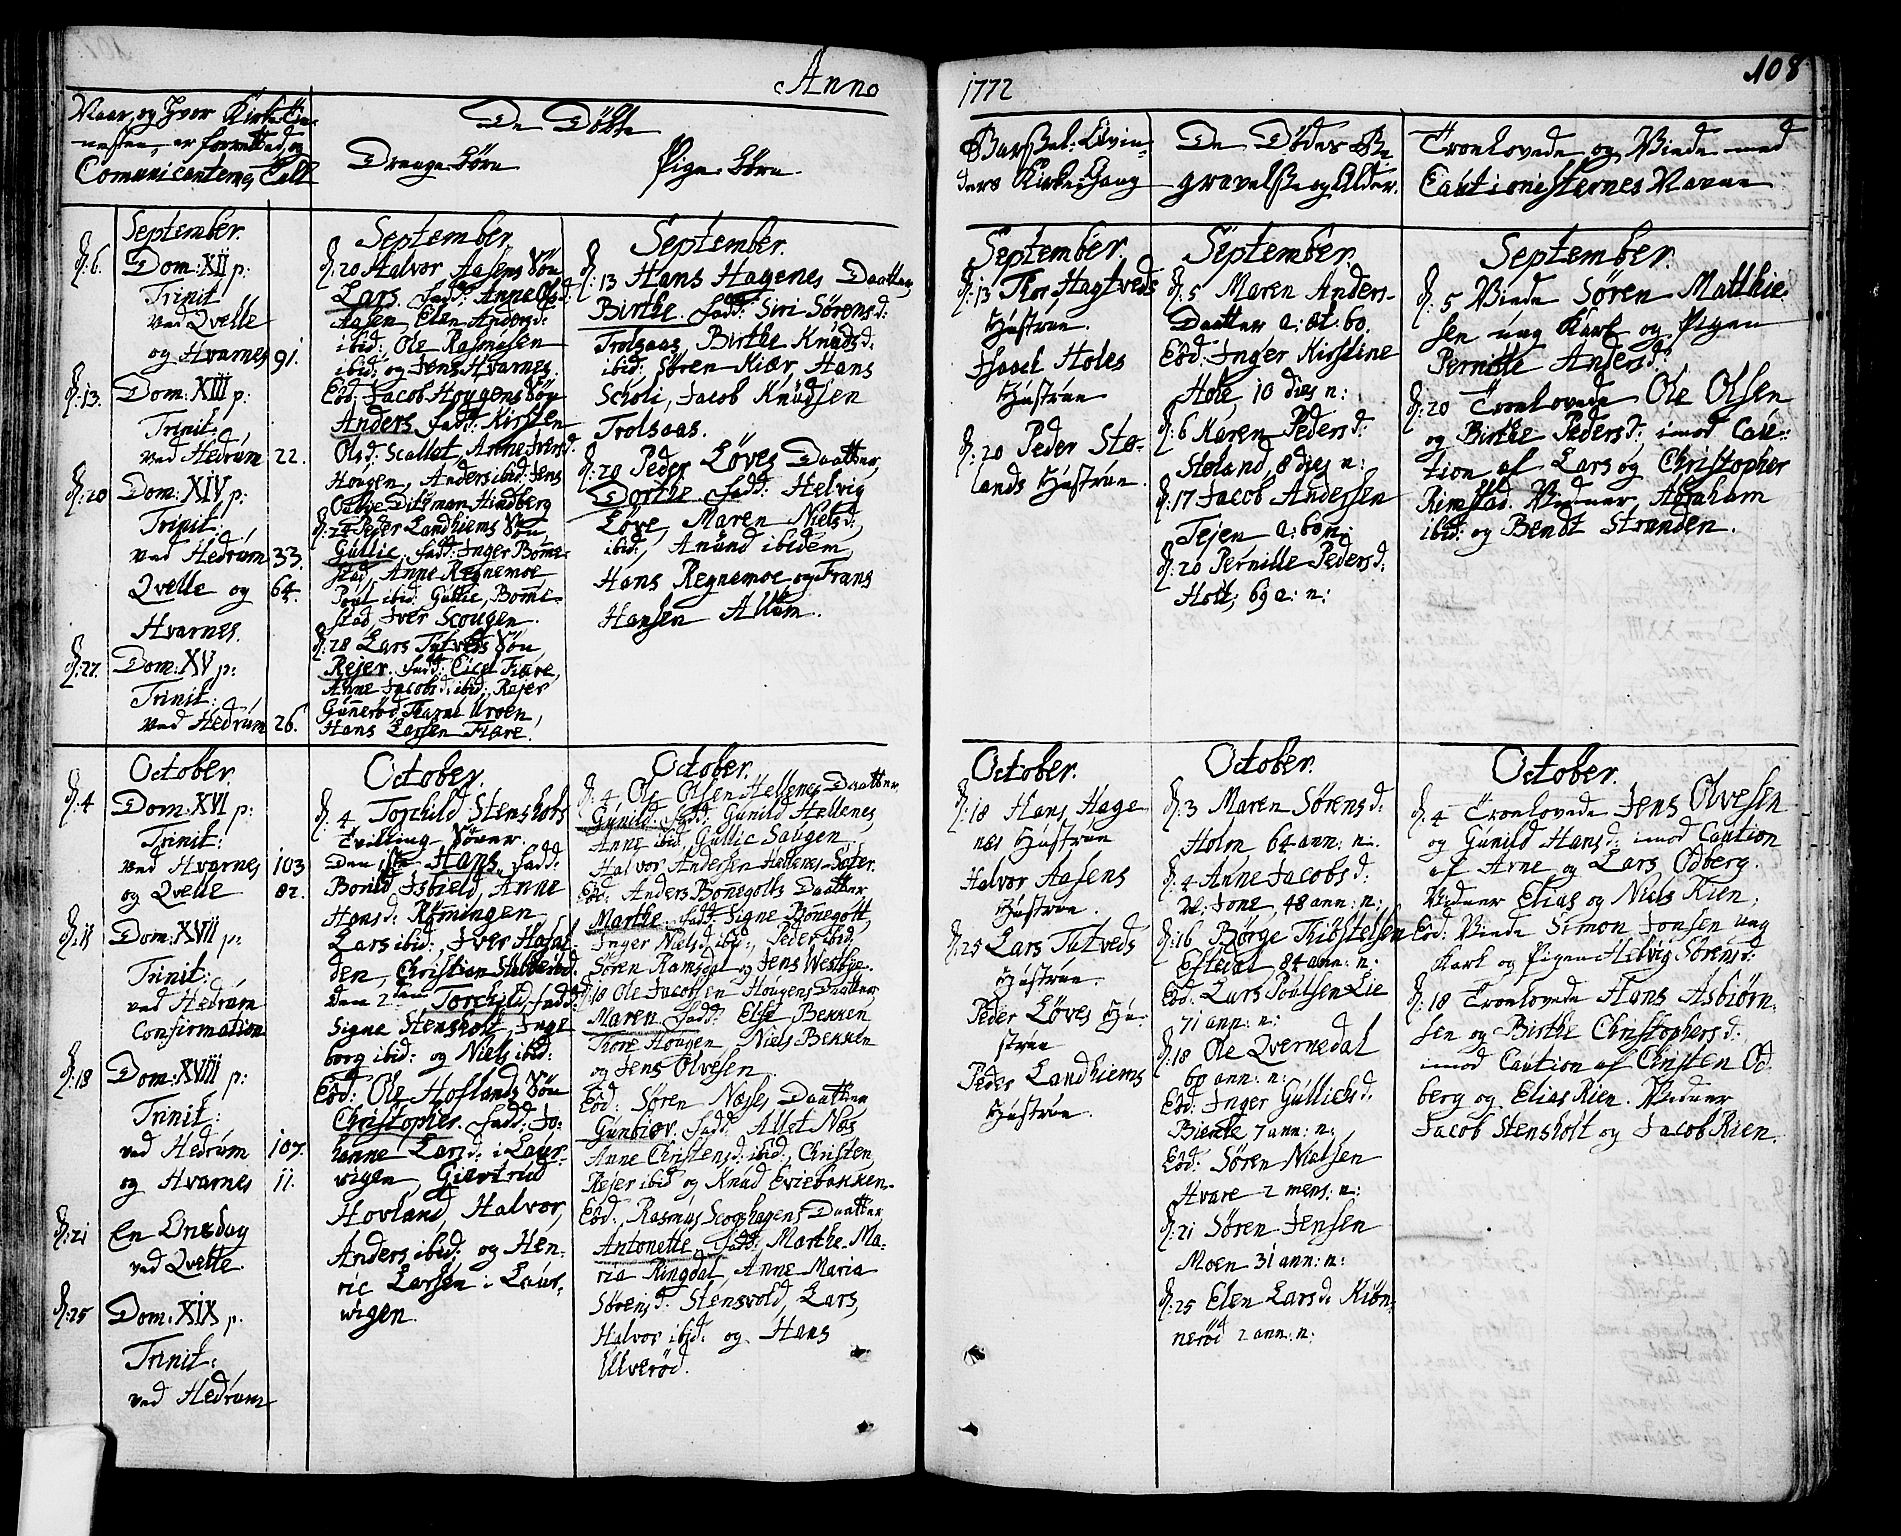 Anno
1772
108
Naar, og Hvor Kirke Tie-
nesten, er forrettet, og
Comunicanternes Tall
De Döbte
Drenge-Börn
Pige-Börn
Barsel-Qvin-
ders Kirke-Gang
De Dödes Be
gravelse og Alder.
Troelovede og Viede med
Cautionisternes Navne
September.
d: 6. Dom: XII p:
Trinit
ved Qvelle
og Hvarnes 91.
d: 13. Dom: XIII p:
Trinit:
ved Hedrum 22.
d: 20 Dom: XIV p:
Trinit:
ved Hedrum 33.
Qvelle og 64.
Hvarnes.
d: 27. Dom: XV p:
Trinit:
ved Hedrum 26.
September.
d: 20 Halvor Aasens Sön
Lars. fadd: Anne Olsd:
Aasen, Elen Andersd:
ibid: Ole Rasmusen
ibid: og Jens Hvarnes.
Eod: Jacob Hougens Sön
Anders fadd: Kirsten
Olsd: Scallet, Anne Iversd:
Hougen, Anders ibid: Jens
Ditsman Hindberg
d: 24 Peder Landhiems Sön
Gullic. fadd: Inger Bomme-
stad, Anne Regnemoe
Poul ibid: Gullic Bomme-
stad, Iver Scougen.
d: 28 Lars Tutveds Sön
Rejer. fadd: Cicel Fiære,
Anne Jacobsd: ibid:, Rejer
Gunneröd, Uroen,
Hans Larsen Fiære.
September.
d: 13 Hans Hagenes Daatter
Birthe. fadd: Siri Sörensd:
Trolsaas, Birthe Knudsd:
ibid: Sören Kiær, Hans
Scholi, Jacob Knudsen
Trolsaas.
d: 20 Peder Löves Daatter
Dorthe. fadd: Helvig
Löve, Maren Nielsd:
ibid:, Anund ibidem,
Hans Regnemoe og Frans
Hansen Allum.
September.
d: 13 Thor Hagtveds
Hustrue.
Isaack Holes
Hustrue
d: 20 Peder Sto-
lands Hustrue.
September.
d: 5 Maren Anders-
Daatter a: æt: 60.
Eod: Inger Kirstine
Hole, 10 dies n:
d: 6 Karen Pedersd:
Stoland, 8 dies n:
d: 17 Jacob Andersen
Tejen a: 60 n:
d: 20 Pernille Pedersd:
Holt, 69 a: n:
September.
d: 5 Viede Sören Matthie-
sen ung Karl og Pigen
Pernille Andersd:
d: 20 Troelovede Ole Olsen
og Birthe Pedersd: imod Cau-
tion af Lars og Christopher
Rimstad. Vidner, Abraham
ibid: og Bendt Stranden.
October.
d: 4 Dom: XVI p:
Trinit:
ved Hvarnes 103
og Qvelle 82.
d: 11 Dom: XVII p:
Trinit:
ved Hedrum
Confirmation
d: 18 Dom: XVIII p:
Trinit:
ved Hedrum 107.
og Hvarnes 11.
d: 21 En Onsdag
ved Qvelle
d: 25 Dom: XIX p.
Trinit:
ved Hedrum
October.
d: 4 Torchild Stensholts
Tvilling-Sönner
Den 1ste Hans. fadd:
Bonild Isbield, Anne
Hansd: Römingen
Lars ibid:, Iver Hasal-
den, Christian ibid.
Den 2den Torchild, fadd:
Signe Stensholt, Inge
borg ibid: og Niels ibid:
Eod: Ole Hoflands Sön
Christopher. fadd: Jo-
hanne Larsd: i Laur-
vigen, Giertrud
Hovland, Halvor,
Anders ibid: og Hen-
ric Larsen i Laur-
wigen.
October.
d: 4 Ole Olsen Hellenes Daatter
Gunild. fadd: Gunild Hellenes,
Anne ibid, Gullic Saugen
Halvor Andersen Hellenes-Sæter.
Eod: Anders Bönegolts Daatter
Marthe. fadd: Signe Bönegolt,
Inger Nielsd ibid:, Peder ibid,
Sören Ramsdal og Jens Westbye.
d: 18 Ole Jacobsen Hougens Daatter
Maren. fadd: Else Bekken
Thore Hougen, Niels Bekken
og Jens Olvesen
Eod: Sören Næsses Daatter
Gunbior. fadd: Allet Næs
Anne Christensd: ibid:, Christen,
Rejer ibid og Knud Eviebakken.
Eod: Rasmus Scogshagens Daatter
Antonette. fadd: Marthe-Ma-
ria Ringdal, Anne Maria
Sörensd: Stensvold, Lars,
Halvor ibid: og Hans
Ulveröd.
October.
d: 18 Hans Hage
næs Hustrue
Halvor Aasens
Hustrue.
d: 25 Lars Tutveds
Hustrue.
Peder Löves Hu-
strue
Peder Landhiems
Hustrue.
October.
d: 3 Maren Sörensd:
Holm 64 ann: n:
d: 4 Anne Jacobsd:
Jone, 48 ann: n:
d: 16 Börge Thostelsen
Eftedal 84 ann: n:
Eod: Lars Poulsen Lie
71 ann: n:
d: 18 Ole Qvernedal
60 ann: n:
Eod: Inger Gullichsd:
Bierke 7 ann: n:
Eod: Sören Nielsen
Hvare 2 mens: n:
d: 21 Sören Jensen
Moen 31 ann: n:
d: 25 Elen Larsd: Kiön-
neröd 2 ann: n:
October.
d: 4 Troelovede Jens Olvesen
og Gunild Hansd: imod Caution
af Arne og Lars Odberg.
Vidner Elias og Niels Rien,
Eod: Viede Simon Jonsen ung
Karl og Pigen Helvig Sörensd:
d: 18 Troelovede Hans Asbiörn-
sen og Birthe Christophersd:
imod Caution af Christen Od
berg og Elias Rien. Vidner
Jacob Stensholt og Jacob Rien.